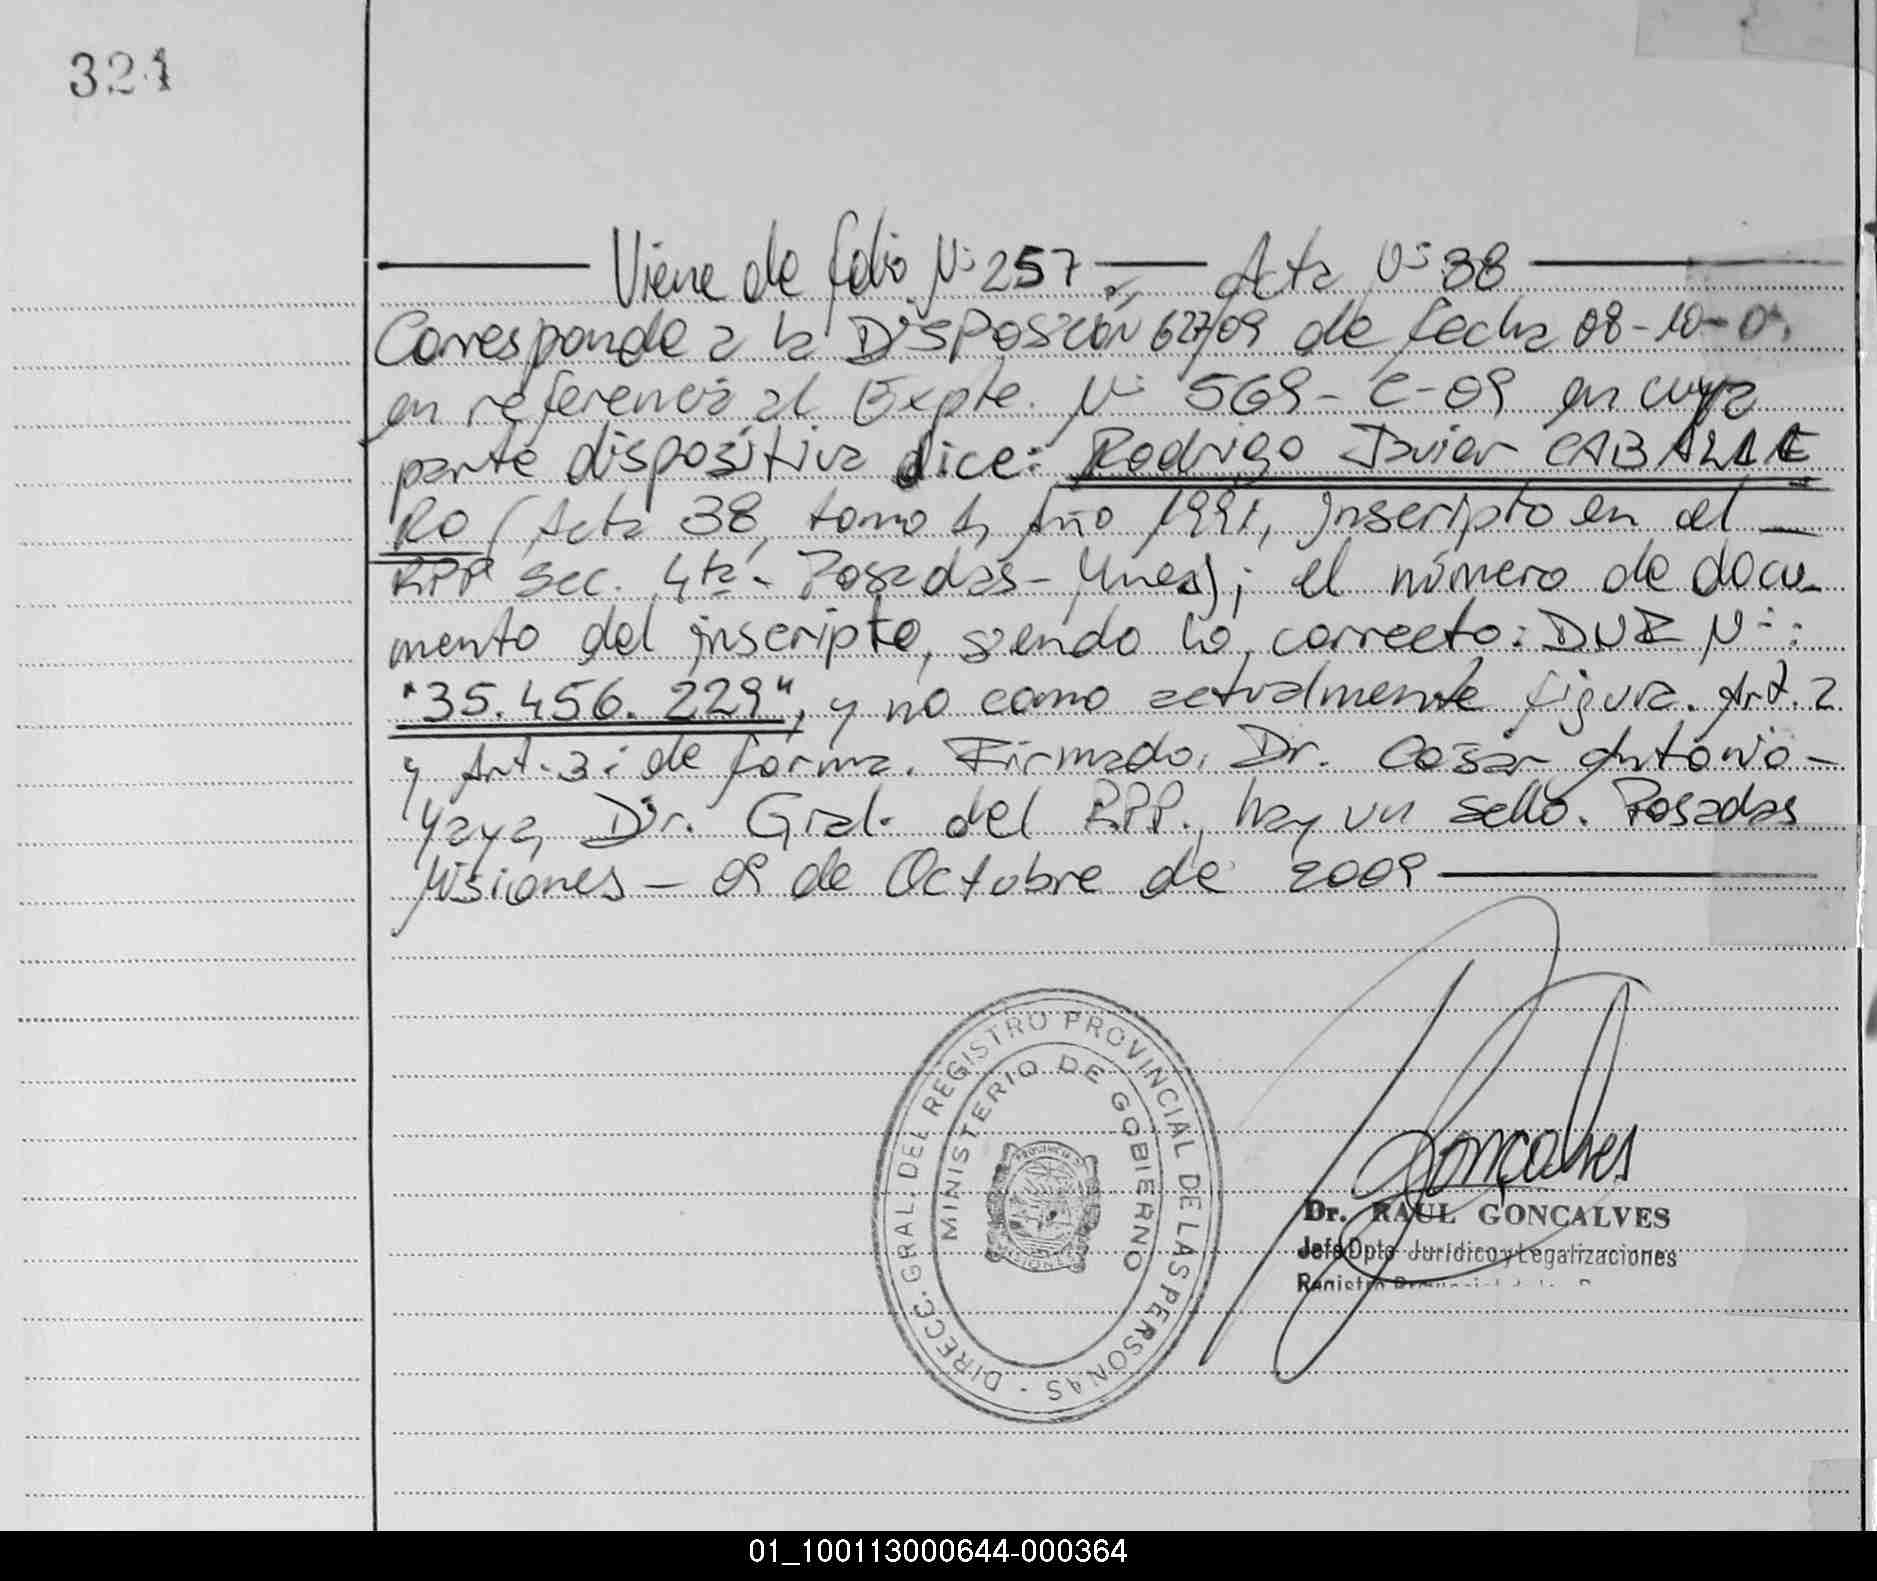 324
Viene de folio N: 257 - Acta N: 38
Corresponde a la Disposición 627/09 de fecha 08-10-0
en referencia al Expte. N: 569-C-09 en cuya
parte dispositiva dice: Rodrigo Javier CABALLE
RO (Acta 38, tomo 1, Año 1991, inscripto en el
RPP Sec. 4ta - Posadas - Mnes); el número de docu-
mento del inscripto, siendo lo correcto: DNI N-:
"35.456.229", y no como actualmente figura. Art. 2
y Art. 3: de forma. Firmado. Dr. César Antonio -
Yaya, Dir. Gral. del RPP., hay un sello. Posadas
Misiones - 09 de Octubre de 2009
DIRECC. GRAL. DEL REGISTRO PROVINCIAL DE LAS PERSONAS -
MINISTERIO DE GOBIERNO
PROVINCIA
MISIONES
Goncalves
Dr. RAUL GONCALVES
Jefe Dpto Jurídico y Legalizaciones
Registro Provincial
01_100113000644-000364